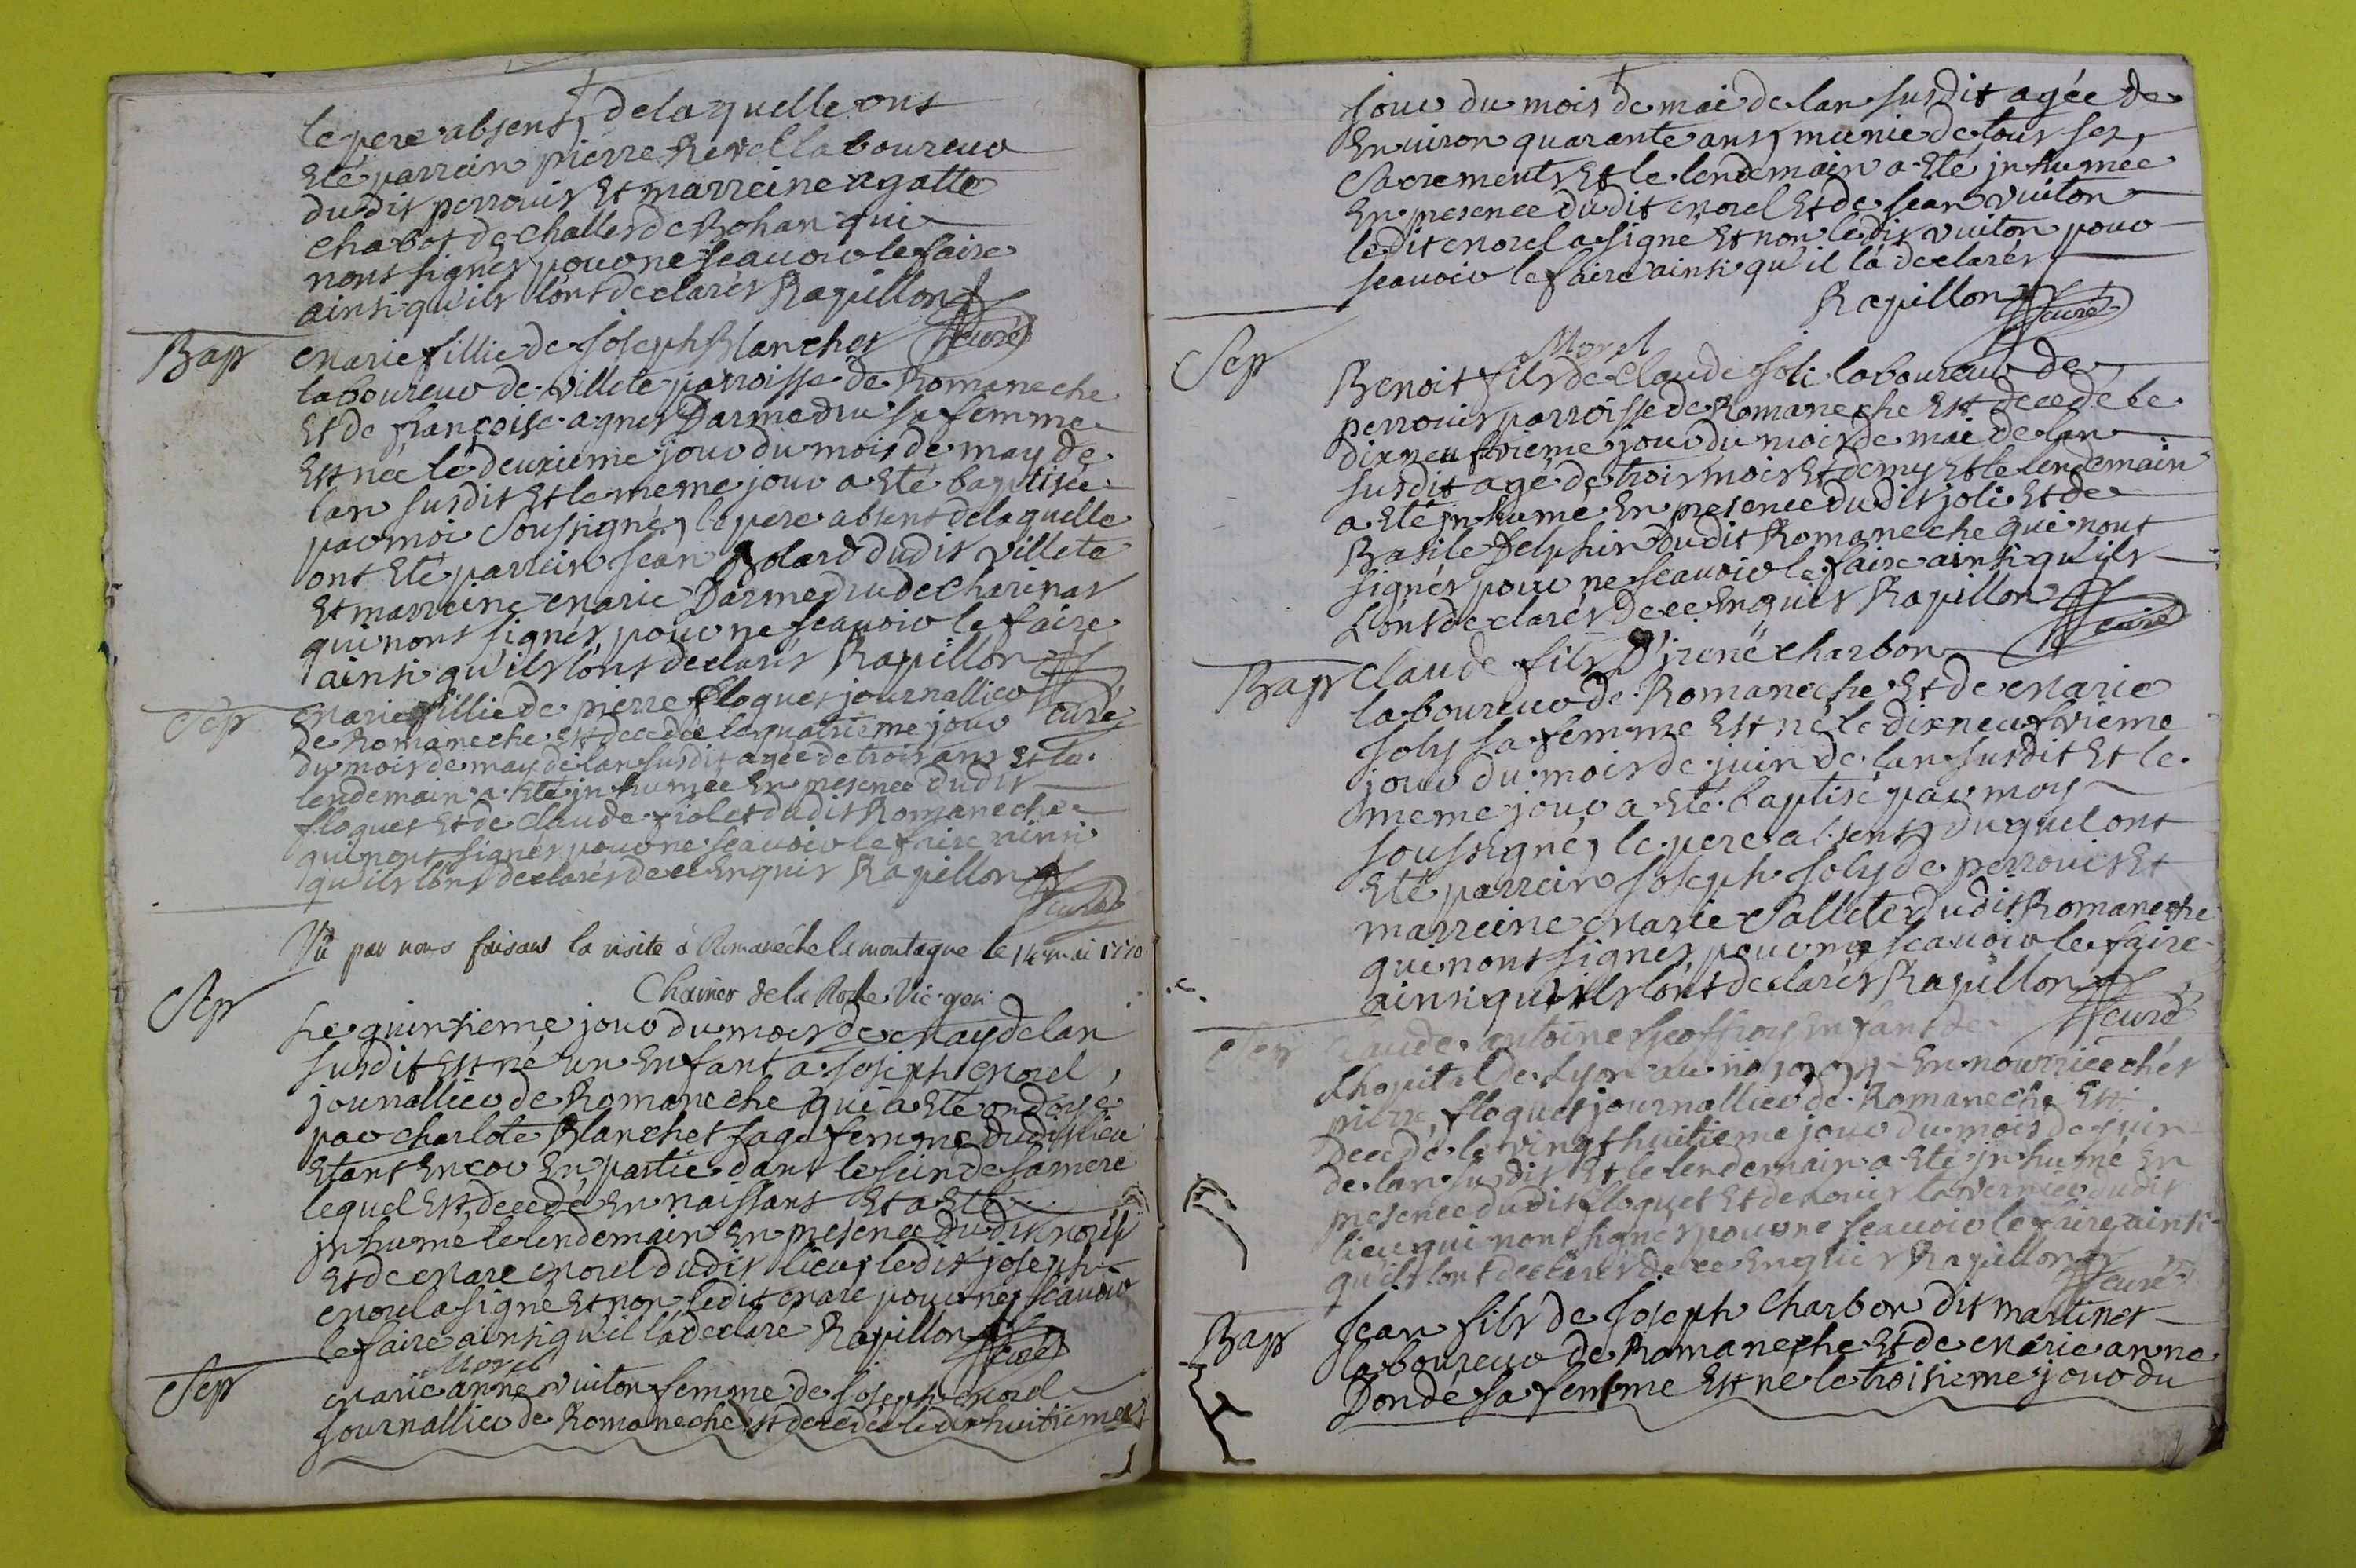 le pere absent, de laquelle ont
Eté parrein pierre Revel laboureur
dudit perrouis Et marreine agatte
chabot de challes de Bohan qui
nont signés pour ne scauoir le faire
ainsi qu'ils lont declarés Rapillon
curé
Bap
Marie fillie de Joseph Blanchet
laboureur de villete parroisse de Romaneche
Et de françoise agnes Darmedru sa femme
Est née le deuxieme jour du mois de may de
lan susdit Et le meme jour a Eté baptisée
par moi soussigné, le pere absent de laquelle
ont Eté parrein jean Golard dudit villete
Et marreine Marie Darmedru de Charinas
qui nont signés pour ne scauoir le faire
ainsi qu'ils lont declarés Rapillon
curé
Sep
Marie fillie de pierre floquet journallier
de Romaneche Est decedée le quatrieme jour
du mois de may de lan susdit agée de trois ans Et le
lendemain a Eté jnhumée En presence dudit
floquet Et de Claude fiolet dudit Romaneche
qui nont signés pour ne scauoir le faire ainsi
qu'ils lont declarés de ce Enquis Rapillon
curé
Vû par nous faisant la visite à Romanèche la montagne le 14 mai 1770
vic. gen.
Sep
Le quinsieme jour du mois de May de lan
susdit Est né un Enfant a joseph Morel
journallier de Romaneche qui a Eté ondoyé
par charlote Blanchet sage femme dudit lieu
Etant Encor En partie dans le sein de sa mere
lequel Est decedé En naissant Et a Eté
jnhumé le lendemain En presence dudit Morel
Et de Marc Morel dudit lieu, ledit joseph
Morel a signé Et non ledit Marc pour ne scauoir
le faire ainsi qu'il la declaré Rapillon
curé
Morel
Sep
Marie anne vuiton femme de joseph Morel
journallier de Romaneche Est decedée le dix huitieme
jour du mois de mai de lan susdit agée de
Enuiron quarante ans, munie de tous ses
Sacrements Et le lendemain a Eté jnhumée
En presence dudit Morel Et de jean vuiton
ledit Morel a signé Et non ledit vuiton pour
scauoir le faire ainsi qu'il la declarés
Rapillon
curé
Morel
Sep
Benoit fils de Claude joli laboureur de
perrouis parroisse de Romaneche Est decede le
dixneufvieme jour du mois de mai de lan
susdit agé de trois mois Et demy Et le lendemain
a Eté jnhumé En presence dudit joli Et de
Basile felphin dudit Romaneche qui nont
signés pour ne scauoir le faire ainsi qu'ils
Lont declarés de ce Enquis Rapillon
curé
Bap
Claude fils D'jrené charbon
laboureur de Romaneche Et de Marie
Joly sa femme Est né le dixneufvieme
jour du mois de juin de lan susdit Et le
meme jour a Eté baptisé par moy
soussigné, le pere absent, duquel ont
Eté parrein Joseph Joly de perrouis Et
marreine Marie Sallete dudit Romaneche
qui nont signés pour ne scauoir le faire
ainsi qu'ils lont declarés Rapillon
curé
Sep
Claude antoine Geoffroy Enfant de
Lhopital de Lyon En nourrice chés
pierre floquet journallier de Romaneche Est
decedé le vingt huitieme jour du mois de juin
de lan susdit Et le lendemain a Eté jnhumé En
presence dudit floquet Et de Louis dudit
lieu qui nont signés pour ne scauoir le faire ainsi
qu'ils lont declarés de ce Enquis Rapillon
curé
Bap
Jean fils de Joseph Charbon dit martinet
laboureur de Romaneche Et de Marie anne
Dondé sa femme Est né le troisieme jour du